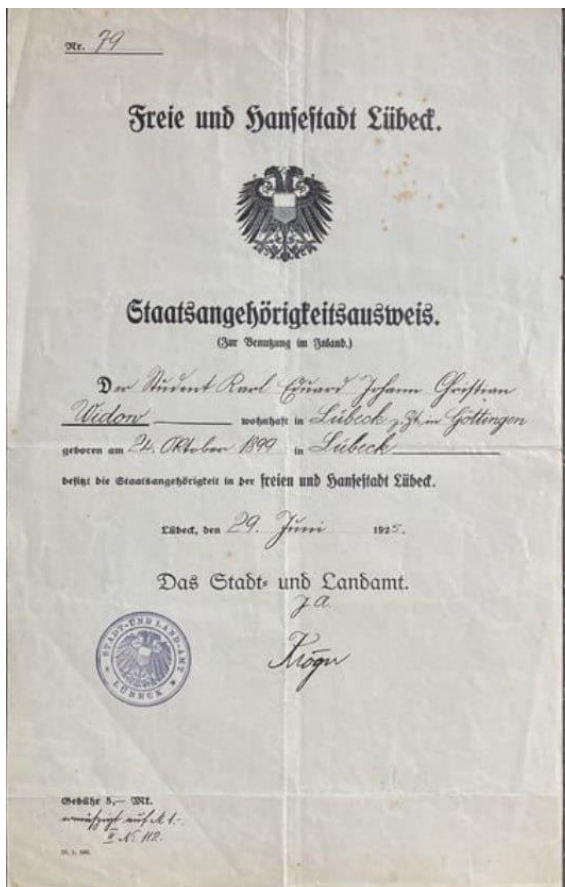 Nr. 79
Freie und Hansestadt Lübeck.
Staatsangehörigkeitsausweis.
(Zur Benutzung im Inland.)
Der Student Karl Eduard Johann Christian
Widow wohnhaft in Lübeck z. Zt. in Göttingen
geboren am 24. Oktober 1899 in Lübeck
besitzt die Staatsangehörigkeit in der freien und Hansestadt Lübeck.
Lübeck, den 29. Juni 1925.
Das Stadt- und Landamt.
J. A.
Kröger
STADT-UND LAND-AMT
LÜBECK
Gebühr 5,— Mk.
ermäßigt auf M 1.-
II № 112.